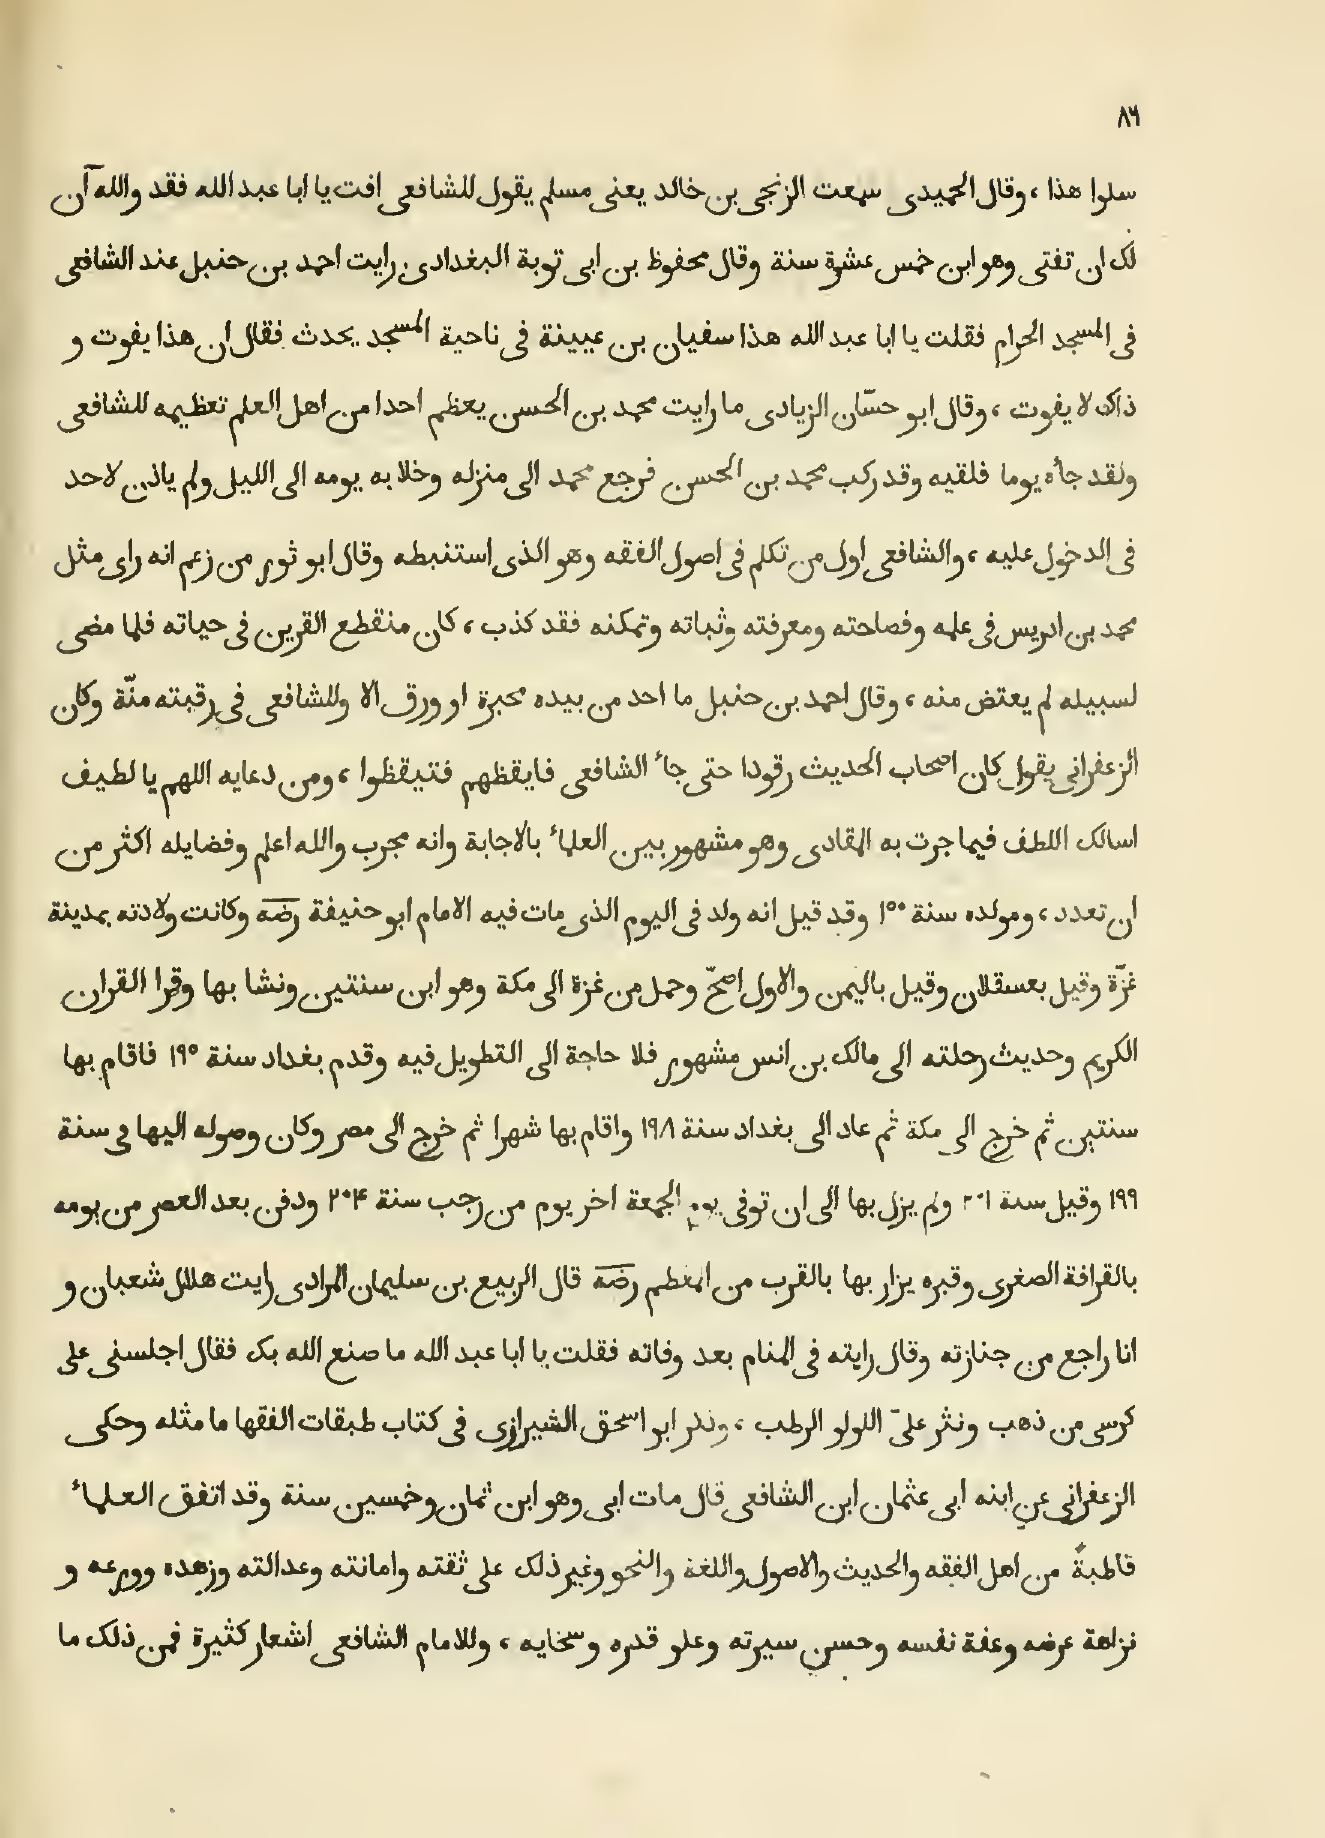 ٨٦
سلوا هذا ، وقال الحميدى سمعت الزنجى بن خالد يعنى مسلم يقول للشافعى افت يا ابا عبد الله فقد والله آن
لك ان تفتى وهو ابن خمس عشرة سنة وقال محفوظ بن ابى توبة البغدادى رايت احمد بن حنبل عند الشافعى
فى المسجد الحرام فقلت يا ابا عبد الله هذا سفيان بن عيينة فى ناحية المسجد يحدث فقال ان هذا يفوت و
ذاك لا يفوت ، وقال ابو حسّان الزيادى ما رايت محمد بن الحسن يعظم احدا من اهل العلم تعظيمه للشافعى
ولقد جأه يوما فلقيه وقد ركب محمد بن الحسن فرجع محمد الى منزله وخلا به يومه الى الليل ولم ياذن لاحد
فى الدخول عليه ، والشافعى اول من تكلم فى اصول الفقه وهو الذى استنبطه وقال ابو ثور من زعم انه راى مثل
محمد بن ادريس فى علمه وفصاحته ومعرفته وثباته وتمكنه فقد كذب ، كان منقطع القرين فى حياته فلما مضى
لسبيله لم يعتض منه ، وقال احمد بن حنبل ما احد من بيده محبرة او ورق الا وللشافعى فى رقبته منّة وكان
الزعفرانى يقول كان اصحاب الحديث رقودا حتى جأ الشافعى فايقظهم فتيقظوا ، ومن دعايه اللهم يا لطيف
اسالك اللطف فيما جرت به المقادى وهو مشهور بين العلمأ بالاجابة وانه مجرب والله اعلم وفضايله اكثر من
ان تعدد ، ومولده سنة ١٥٠ وقد قيل انه ولد فى اليوم الذى مات فيه الامام ابو حنيفة رضه وكانت ولادته بمدينة
غزّة وقيل بعسقلان وقيل باليمن والاول اصحّ وحمل من غزة الى مكة وهو ابن سنتين ونشا بها وقرا القران
الكريم وحديث رحلته الى مالك بن انس مشهور فلا حاجة الى التطويل فيه وقدم بغداد سنة ١٩٥ فاقام بها
سنتين ثم خرج الى مكة ثم عاد الى بغداد سنة ١٩٨ واقام بها شهرا ثم خرج الى مصر وكان وصوله اليها فى سنة
١٩٩ وقيل سنة ٢٠١ ولم يزل بها الى ان توفى يوم الجمعة اخر يوم من رجب سنة ٢٠۴ ودفن بعد العصر من يومه
بالقرافة الصغرى وقبره يزار بها بالقرب من المقطم رضه قال الربيع بن سليمان المرادى رايت هلال شعبان و
انا راجع من جنازته وقال رايته فى المنام بعد وفاته فقلت يا ابا عبد الله ما صنع الله بك فقال اجلسنى على
كرسى من ذهب ونثر علىّ اللولو الرطب ، وذكر ابو اسحق الشيرازى فى كتاب طبقات الفقها ما مثله وحكى
الزعفرانى عن ابنه ابى عثمان ابن الشافعى قال مات ابى وهو ابن ثمان وخمسين سنة وقد اتفق العلمأ
قاطبةً من اهل الفقه والحديث والاصول واللغة والنحو وغير ذلك على ثقته وامانته وعدالته وزهده وورعه و
نزاهة عرضه وعفة نفسه وحسن سيرته وعلو قدره وسخايه ، وللامام الشافعى اشعار كثيرة فمن ذلك ما